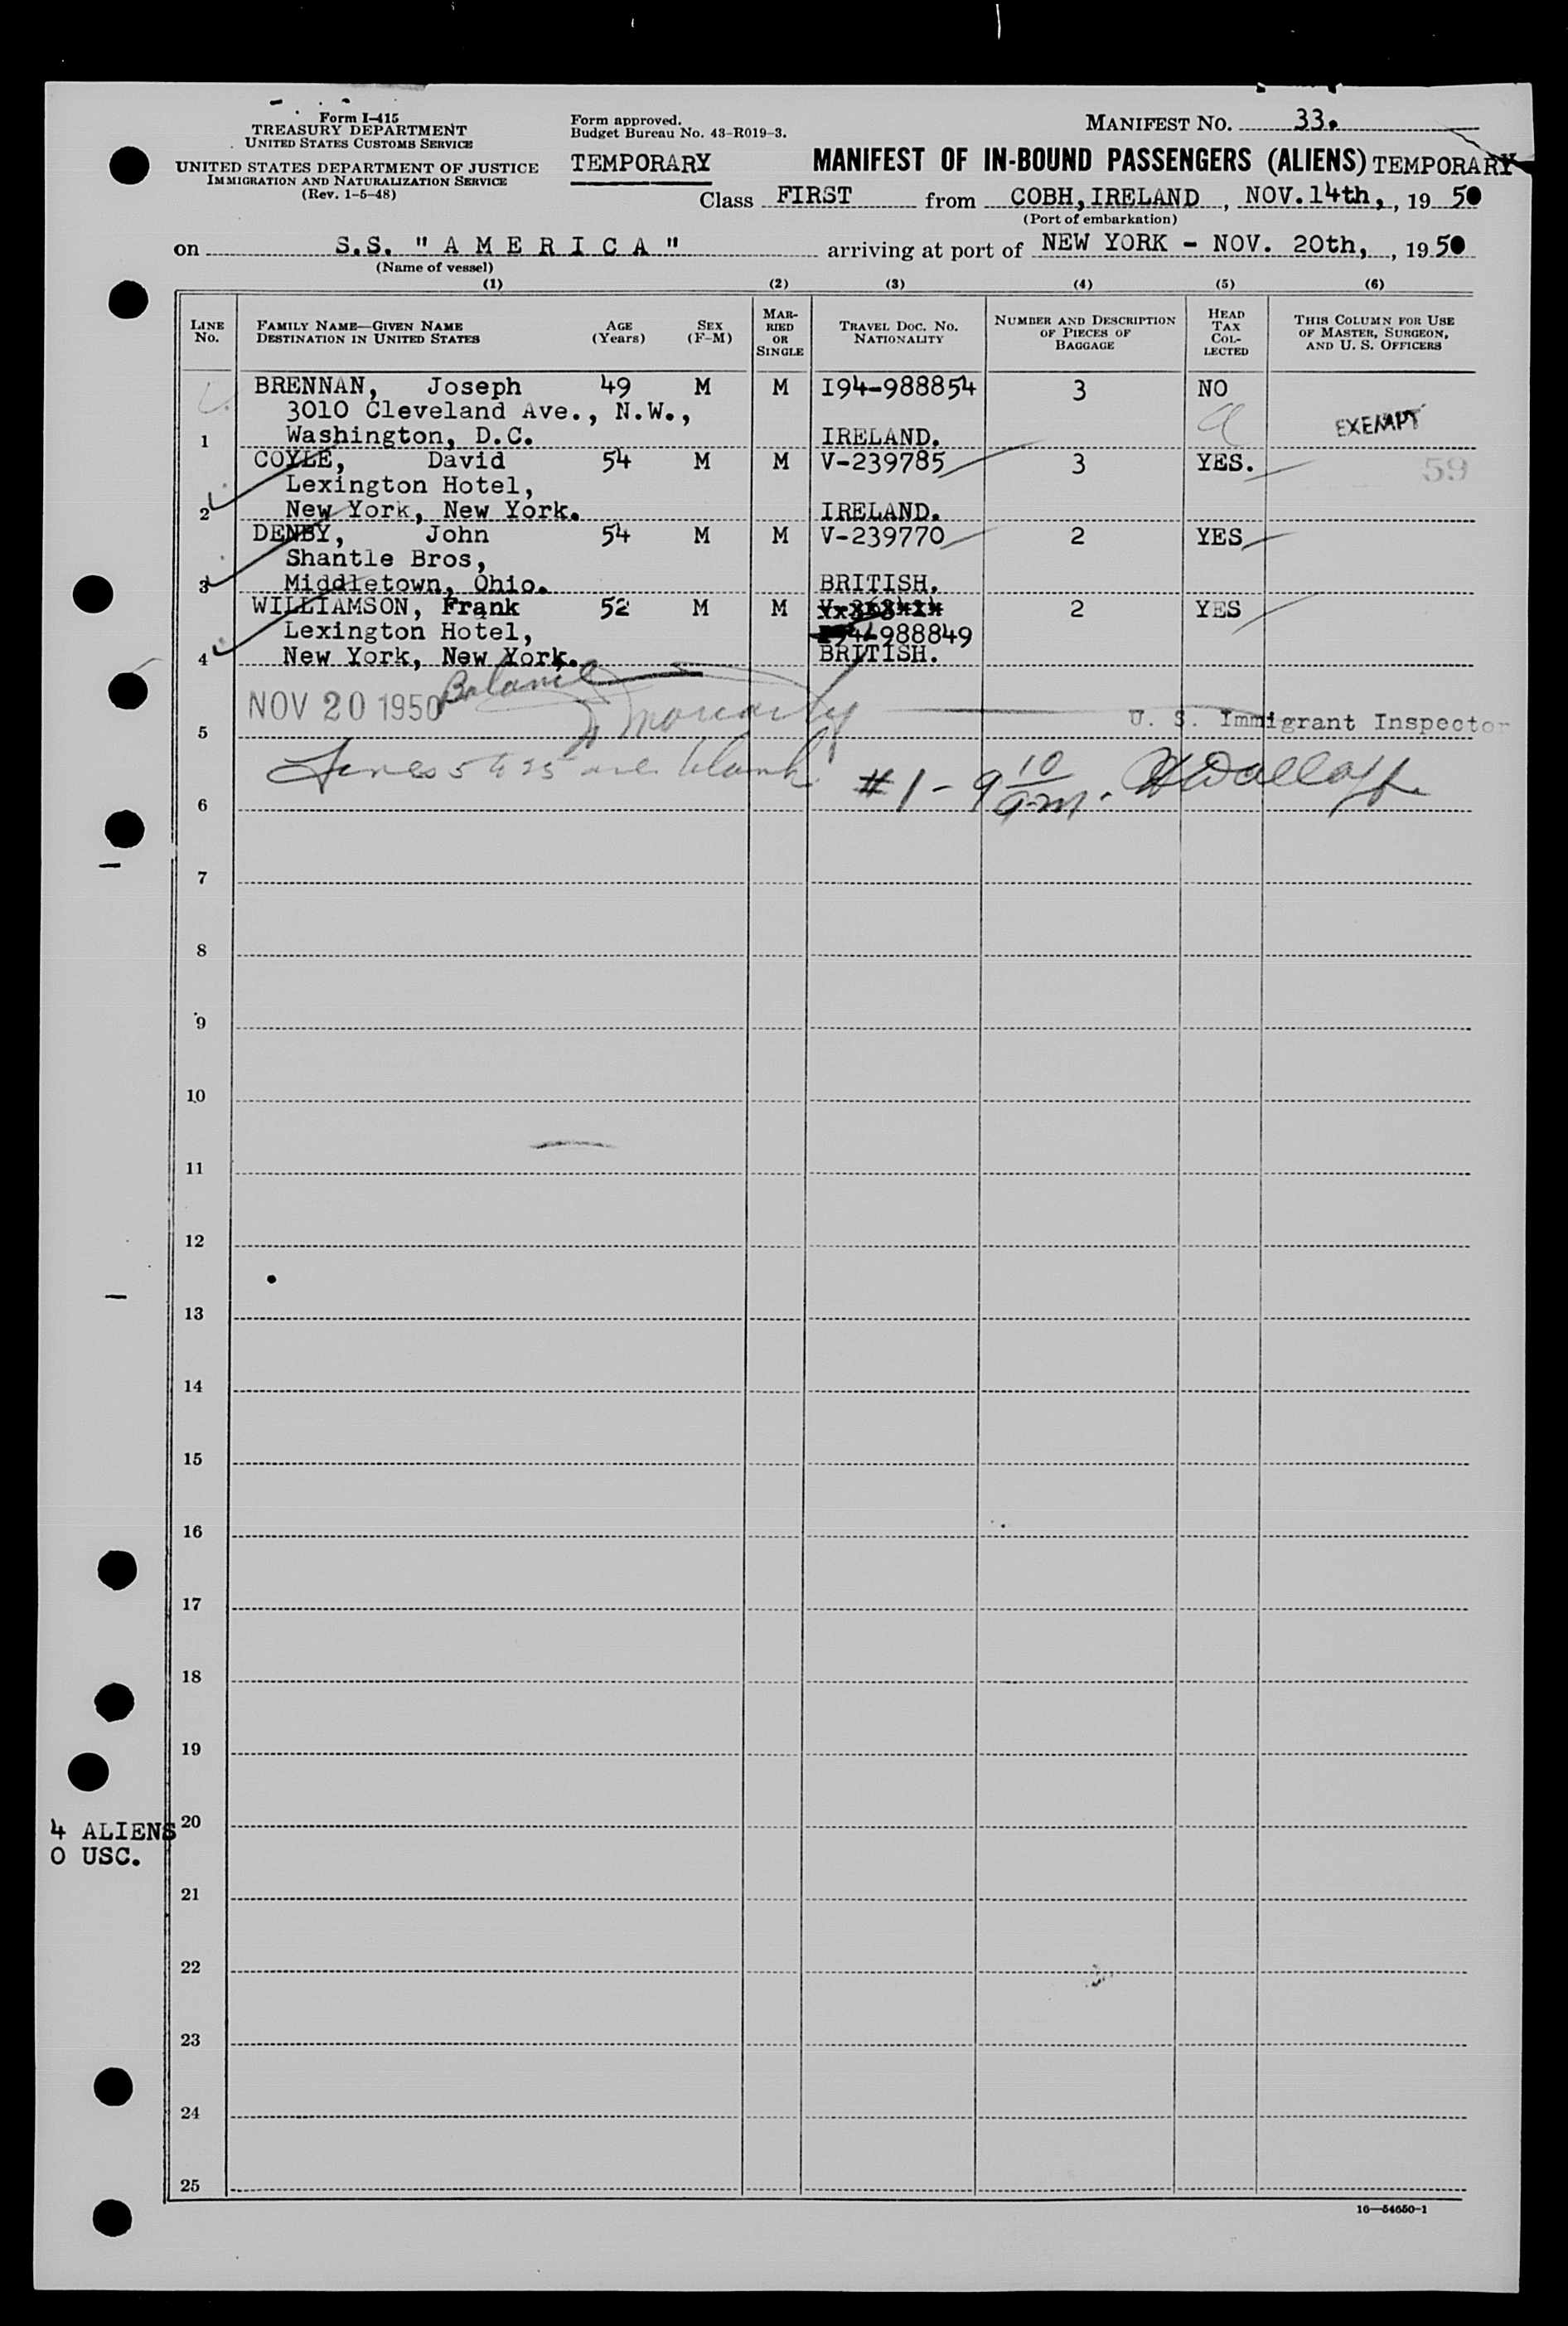 Form I-415
TREASURY DEPARTMENT
UNITED STATES CUSTOMS SERVICE
UNITED STATES DEPARTMENT OF JUSTICE
IMMIGRATION AND NATURALIZATION SERVICE
(Rev. 1-5-48)
Form approved.
Budget Bureau No. 43-R019-3.
TEMPORARY
MANIFEST NO. 33.
MANIFEST OF IN-BOUND PASSENGERS (ALIENS) TEMPORARY
Class FIRST from COBH, IRELAND, NOV. 14th, , 19 50
(Port of embarkation)
on S.S. "A M E R I C A" arriving at port of NEW YORK - NOV. 20th, , 19 50
(Name of vessel)
(1) (2) (3) (4) (5) (6)
LINE NO. FAMILY NAME—GIVEN NAME DESTINATION IN UNITED STATES AGE (Years) SEX (F-M) MARRIED OR SINGLE TRAVEL DOC. NO. NATIONALITY NUMBER AND DESCRIPTION OF PIECES OF BAGGAGE HEAD TAX COLLECTED THIS COLUMN FOR USE OF MASTER, SURGEON, AND U. S. OFFICERS
BRENNAN, Joseph 49 M M I94-988854 3 NO
3010 Cleveland Ave., N.W.,
EXEMPT
1 Washington, D.C. IRELAND.
COYLE, David 54 M M V-239785 3 YES. 59
Lexington Hotel,
2 New York, New York. IRELAND.
DENBY, John 54 M M V-239770 2 YES
Shantle Bros,
3 Middletown, Ohio. BRITISH.
WILLIAMSON, Frank 52 M M 2 YES
Lexington Hotel, 988849
4 New York, New York. BRITISH.
NOV 20 1950 Balance Moriarty U. S. Immigrant Inspector
5
Lines 5 to 25 are blank #1 - 9 10 am.
6
7
8
9
10
11
12
13
14
15
16
17
18
19
20
4 ALIENS
0 USC.
21
22
23
24
25
16—54650-1